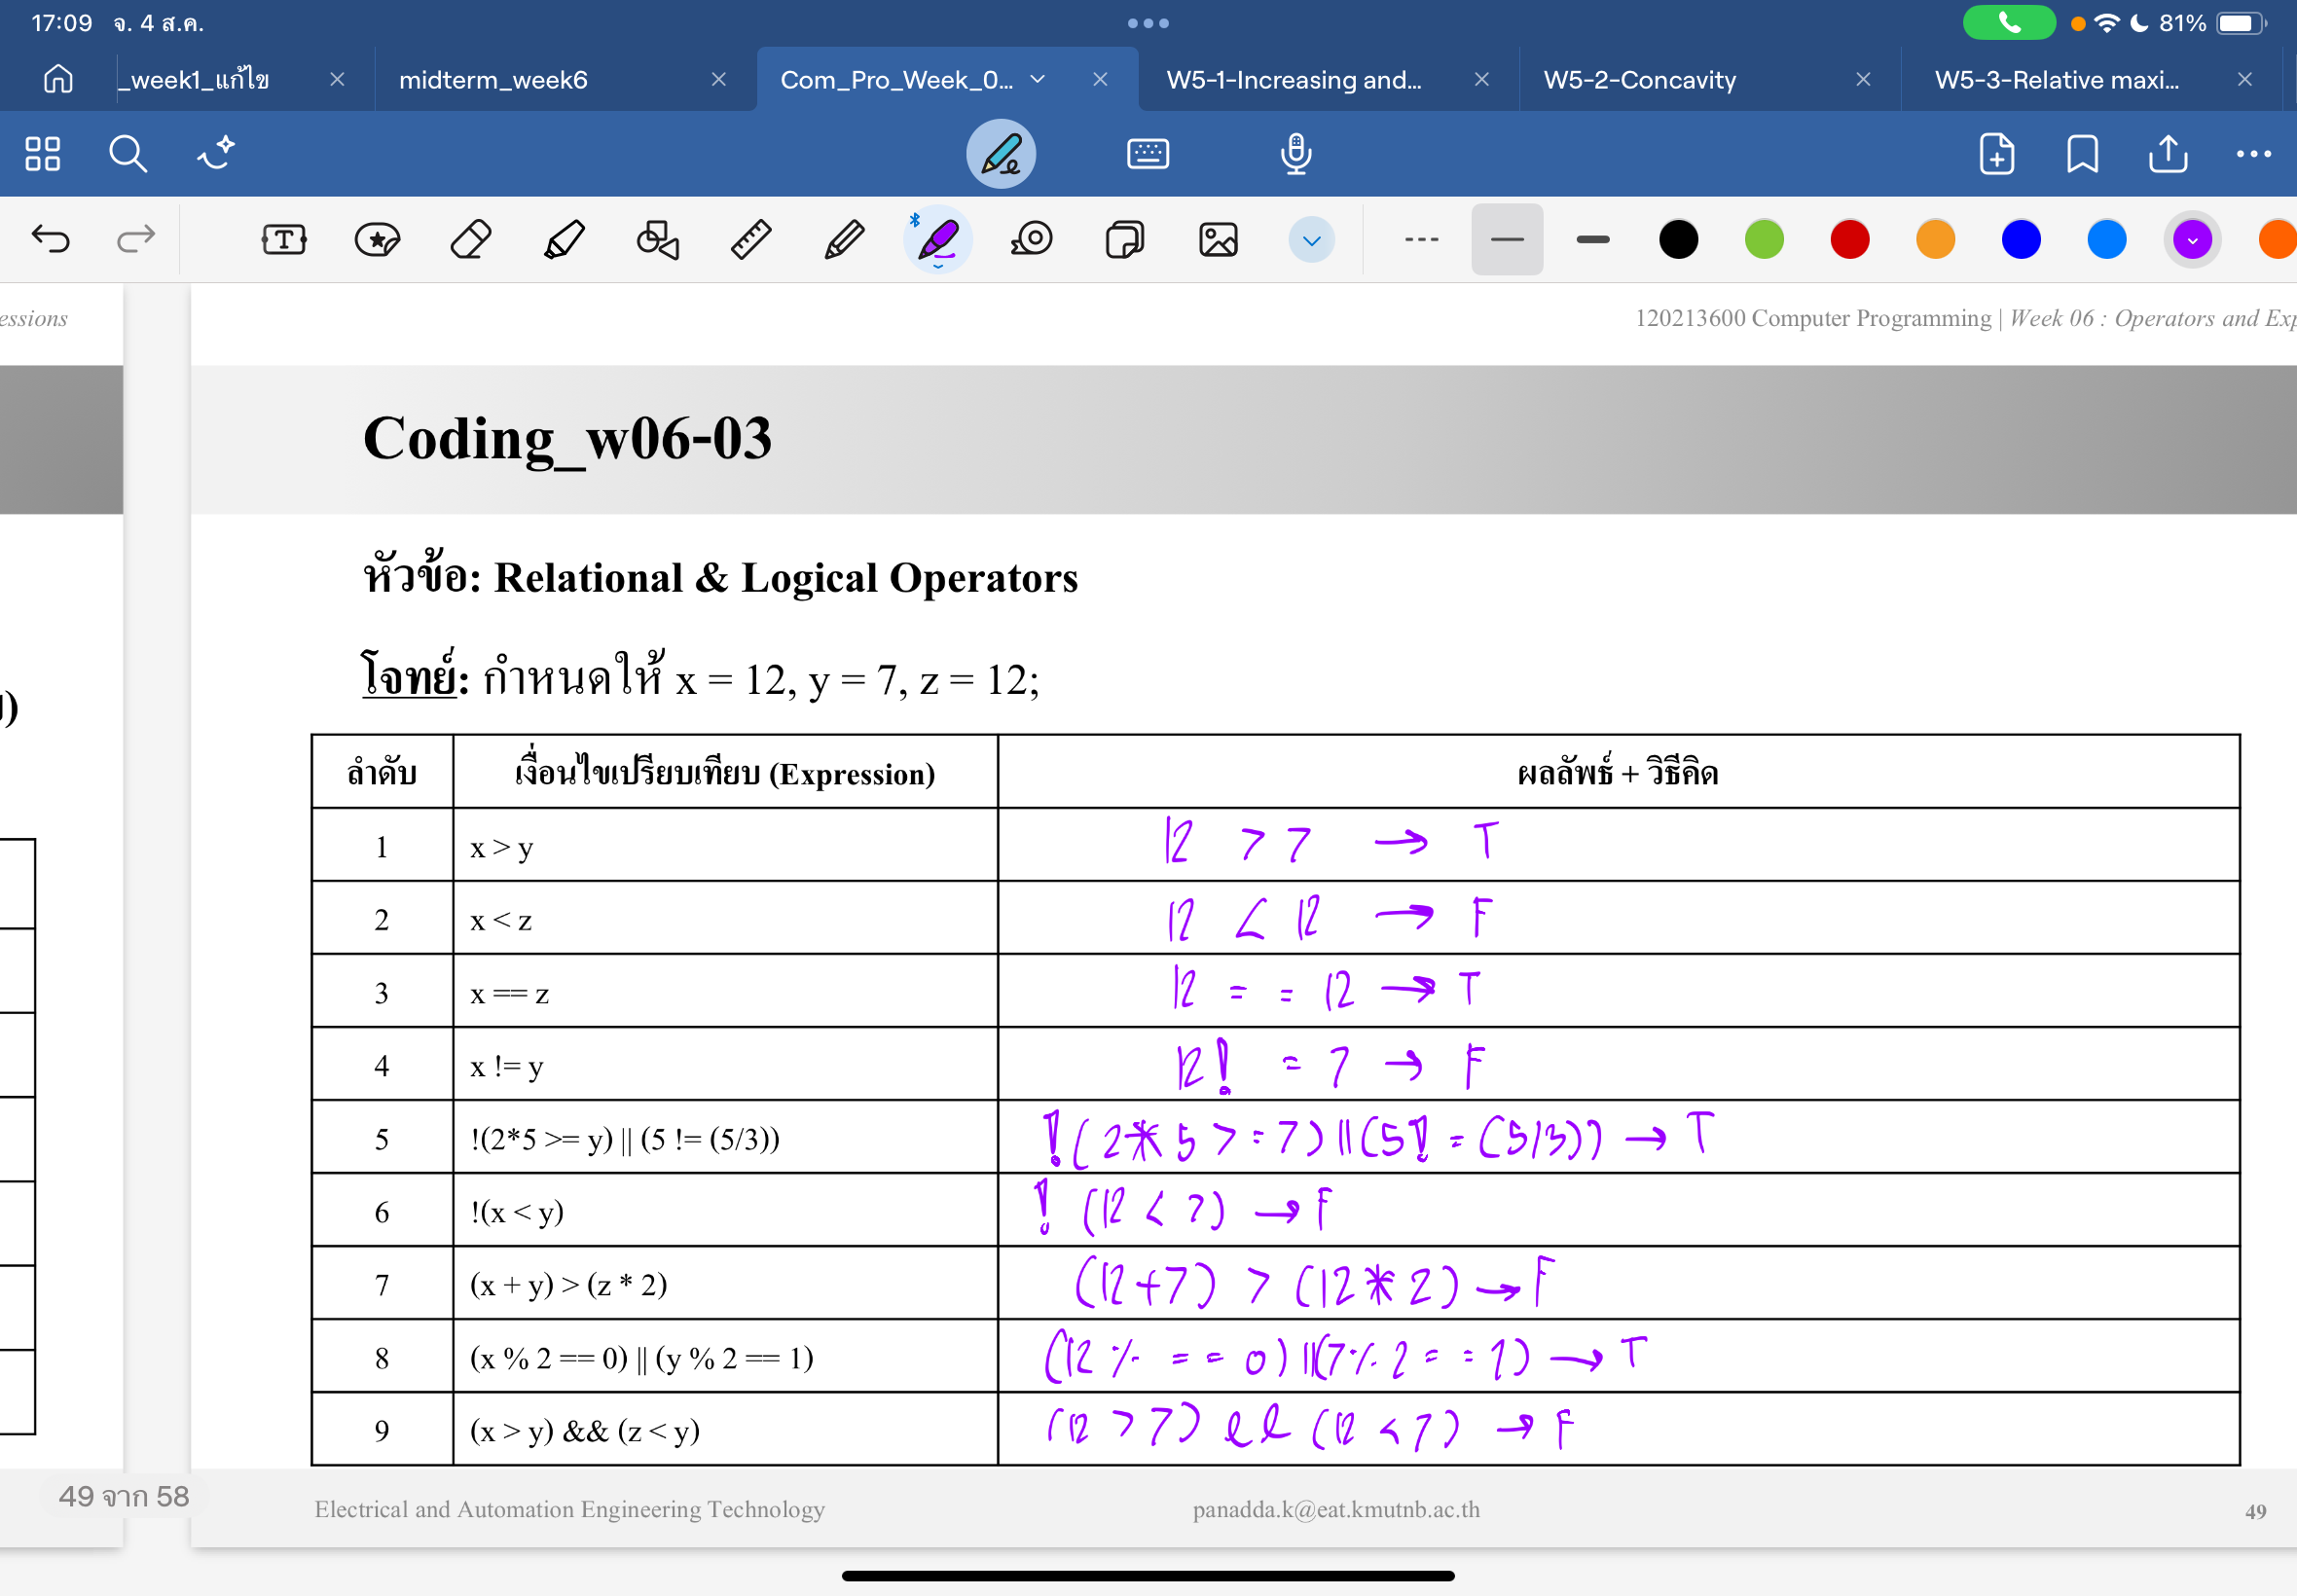 17:09 จ. 4 ส.ค. 81%
_week1_แก้ไข midterm_week6 Com_Pro_Week_0... W5-1-Increasing and... W5-2-Concavity W5-3-Relative maxi...
essions
120213600 Computer Programming | Week 06 : Operators and Exp
Coding_w06-03
หัวข้อ: Relational & Logical Operators
โจทย์: กำหนดให้ x = 12, y = 7, z = 12;
ลำดับ เงื่อนไขเปรียบเทียบ (Expression) ผลลัพธ์ + วิธีคิด
1 x > y 12 > 7 → T
2 x < z 12 < 12 → F
3 x == z 12 = = 12 → T
4 x != y 12 ! = 7 → F
5 !(2*5 >= y) || (5 != (5/3)) !(2*5 >=7)||(5!=(5/3)) → T
6 !(x < y) ! (12 < 7) → F
7 (x + y) > (z * 2) (12+7) > (12*2) → F
8 (x % 2 == 0) || (y % 2 == 1) (12 % == 0)||(7% 2 == 1) → T
9 (x > y) && (z < y) (12 > 7) && (12 < 7) → F
49 จาก 58
Electrical and Automation Engineering Technology panadda.k@eat.kmutnb.ac.th 49